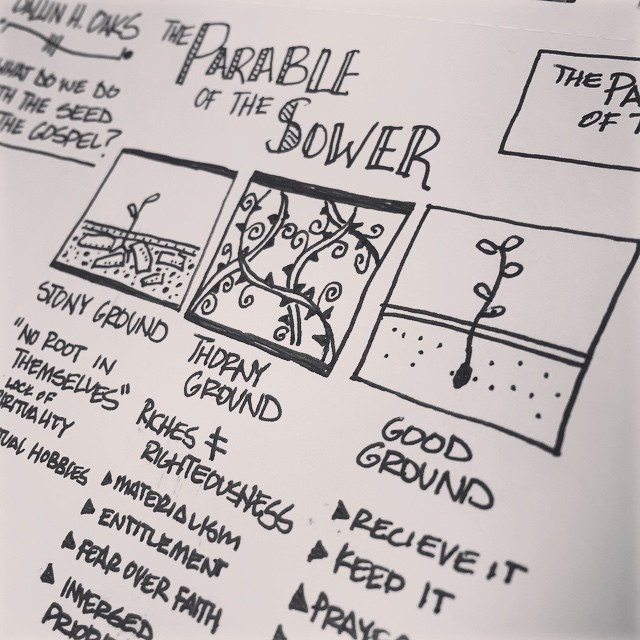 DALLIN H. OAKS
WHAT DO WE DO
THE SEED
THE GOSPEL?
THE PARABLE
OF THE
SOWER
THE
OF
STONY GROUND
"NO ROOT IN
THEMSELVES"
LACK OF
HOBBIES
THORNY
GROUND
RICHES &
RIGHTEOUSNESS
▶ MATERIALISM
▶ ENTITLEMENT
▶ FEAR OVER FAITH
▶ INVERSED
GOOD
GROUND
▶ RECIEVE IT
▶ KEED IT